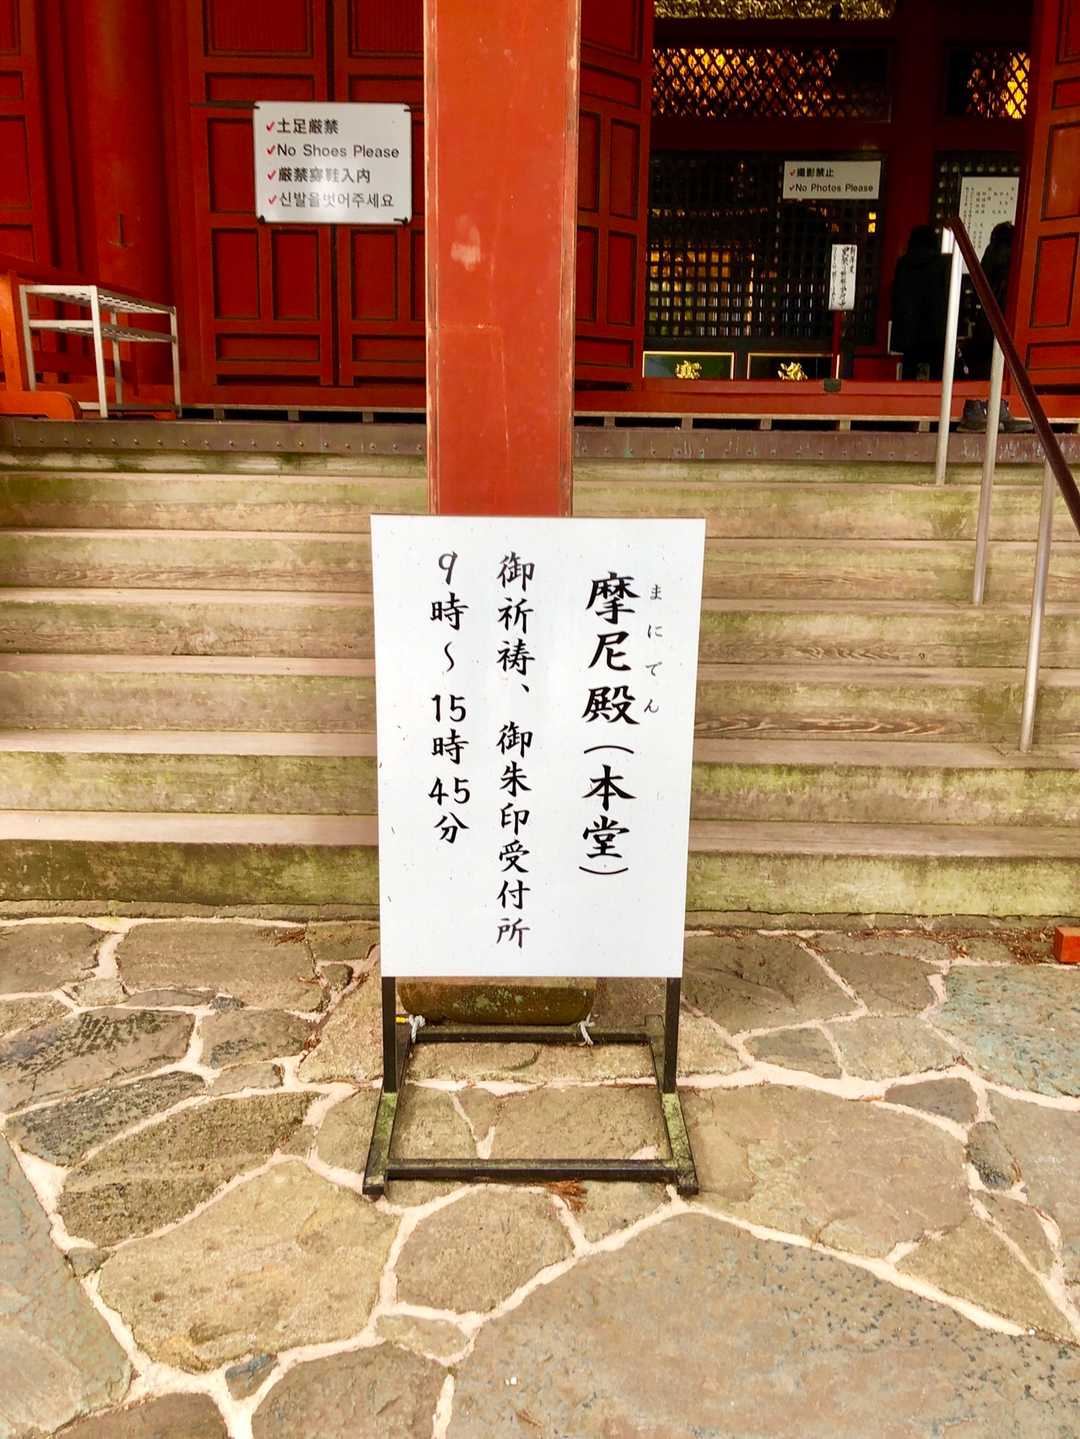 土足厳禁
No Shoes Please
厳禁穿鞋入内
신발을벗어주세요
撮影禁止
No Photos Please
摩尼殿(本堂)
まにでん
御祈祷、御朱印受付所
9時～15時45分